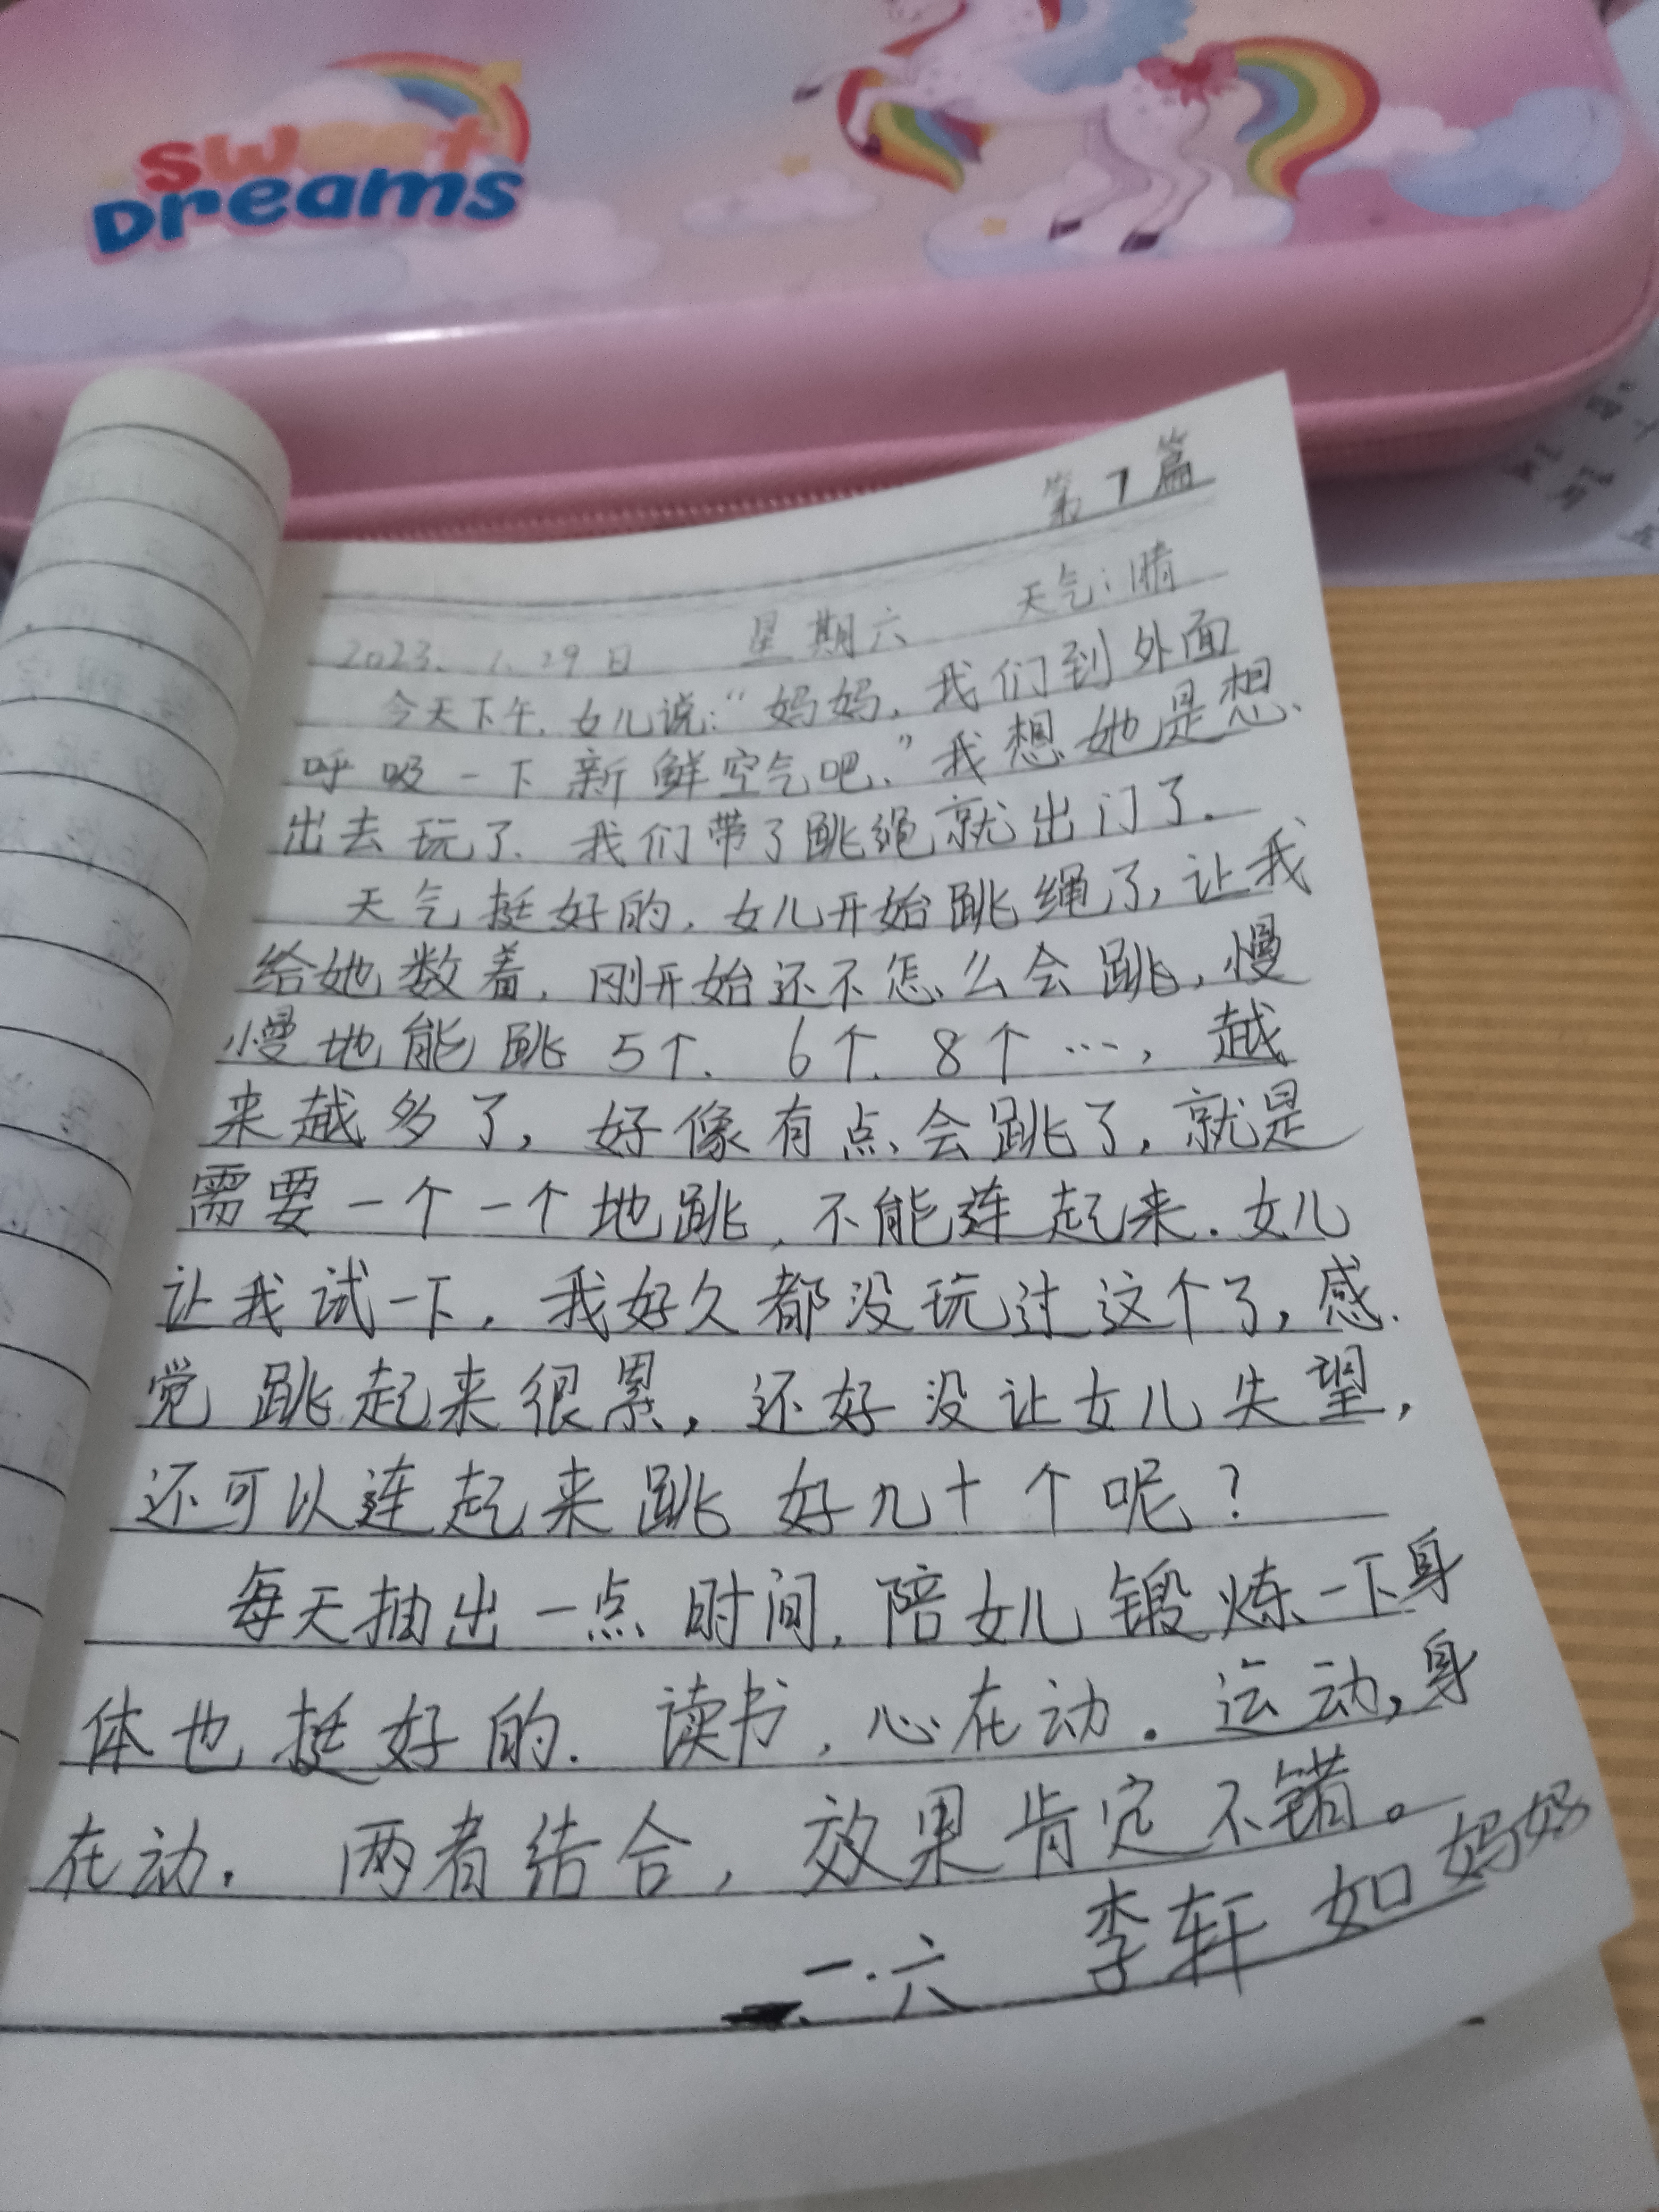 sweet
Dreams
第7篇
2023. 1. 29日 星期六 天气:晴
今天下午,女儿说:“妈妈,我们到外面
呼吸一下新鲜空气吧.”我想她是想
出去玩了.我们带了跳绳就出门了.
天气挺好的,女儿开始跳绳了,让我
给她数着,刚开始还不怎么会跳,慢
慢地能跳5个.6个.8个…,越
来越多了,好像有点会跳了,就是
需要一个一个地跳,不能连起来.女儿
让我试一下,我好久都没玩过这个了,感
觉跳起来很累,还好没让女儿失望,
还可以连起来跳好几十个呢?
每天抽出一点时间,陪女儿锻炼一下身
体也挺好的.读书,心在动.运动,身
在动.两者结合,效果肯定不错。
一.六 李轩如妈妈